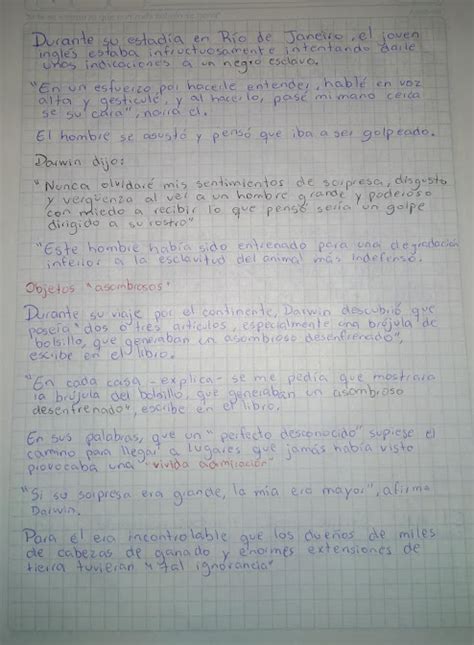 Durante su estadía en Río de Janeiro, el joven
inglés estaba infructuosamente intentando darle
unas indicaciones a un negro esclavo.
"En un esfuerzo por hacerle entender, hablé en voz
alta y gesticulé, y al hacerlo, pasé mi mano cerca
se su cara", narra él.
El hombre se asustó y pensó que iba a ser golpeado.
Darwin dijo:
"Nunca olvidaré mis sentimientos de sorpresa, disgusto
y vergüenza al ver a un hombre grande y poderoso
con miedo a recibir lo que pensó sería un golpe
dirigido a su rostro"
"Este hombre había sido entrenado para una degradación
inferior a la esclavitud del animal más indefenso.
Objetos "asombrosos"
Durante su viaje por el continente, Darwin descubrió que
poseía "dos o tres artículos, especialmente una brújula de
bolsillo, que generaban un asombroso desenfrenado",
escribe en el libro.
"En cada casa -explica- se me pedía que mostrara
la brújula del bolsillo, que generaban un asombroso
desenfrenado", escribe en el libro.
En sus palabras, que un "perfecto desconocido" supiese el
camino para llegar a lugares que jamás había visto
provocaba una "vívida admiración"
"Si su sorpresa era grande, la mía era mayor", afirma
Darwin.
Para él era incontrolable que los dueños de miles
de cabezas de ganado y enormes extensiones de
tierra tuvieran "tal ignorancia"